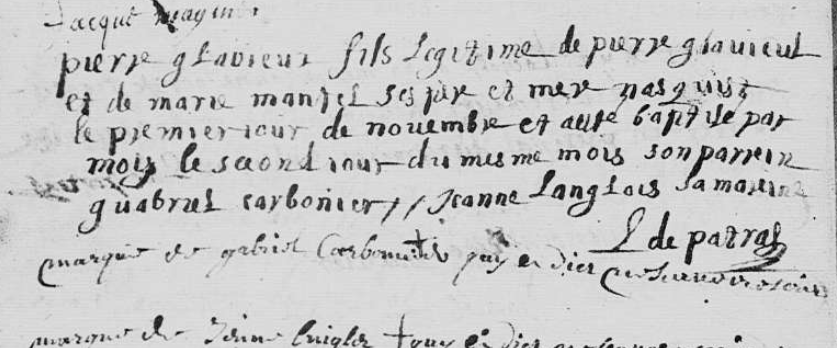 Jacque
pierre glavieux fils legitime de pierre glavieul
et de marie mantel ses pere et mere nasquist
le premier iour de novembre et a esté baptise par
mois le second iour du mesme mois son parrein
guabriel carbonier // Jeanne Langlois sa mareine
L de patras
marque de gabriel Carbonier qui a dict
marque de Jenne + qui a dict